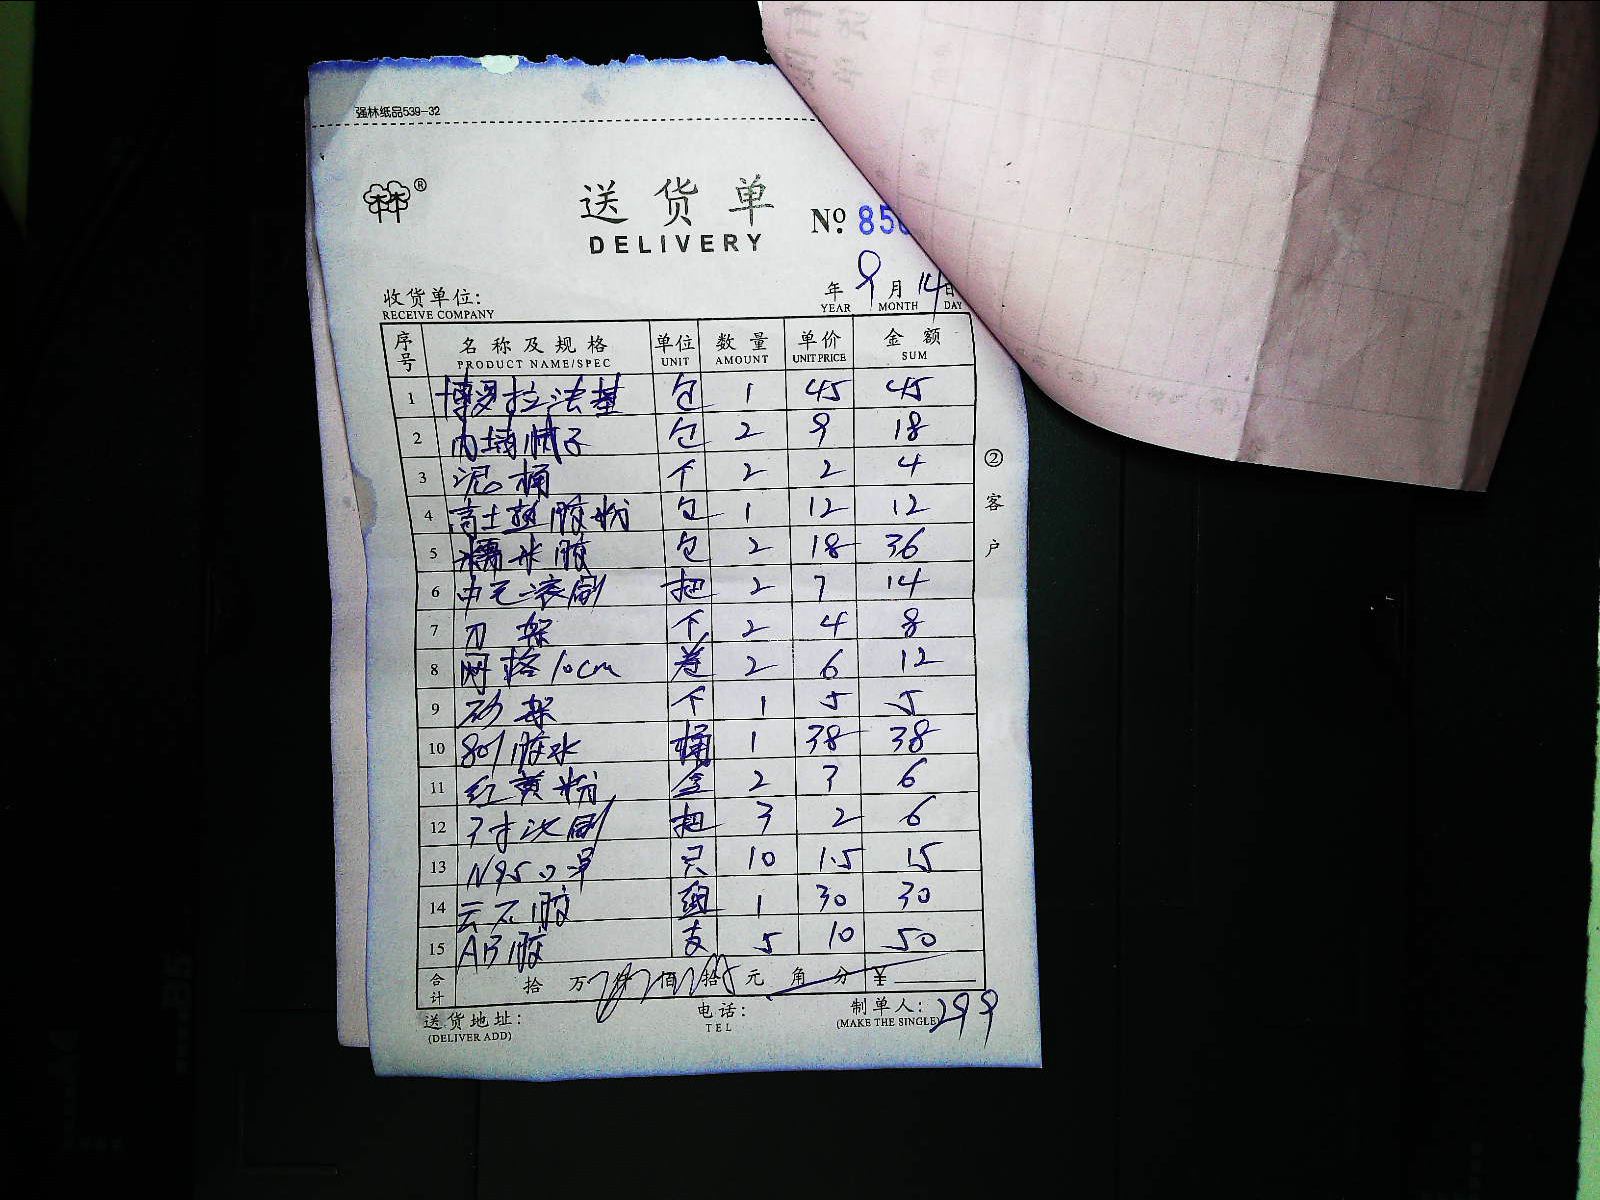 强林纸品539-32
®
送货单
DELIVERY
Nº. 85
年 9 月 14 日
YEAR MONTH DAY
收货单位:
RECEIVE COMPANY
序号 名称及规格 单位 数量 单价 金额
PRODUCT NAME/SPEC UNIT AMOUNT UNIT PRICE SUM
1 博罗拉法基 包 1 45 45
2 内墙腻子 包 2 9 18
3 泥桶 个 2 2 4
4 高士 胶粉 包 1 12 12
5 糯米胶 包 2 18 36
6 中毛滚刷 把 2 7 14
7 刀架 个 2 4 8
8 网格10cm 卷 2 6 12
9 砂架 个 1 5 5
10 801胶水 桶 1 38 38
11 红黄粉 盒 2 3 6
12 3寸 刷 把 3 2 6
13 N95口罩 只 10 1.5 15
14 云石胶 组 1 30 30
15 AB胶 支 5 10 50
合计 拾 万 仟 佰 拾 元 角 分 ¥
299
送货地址: 电话: 制单人:
(DELIVER ADD) TEL (MAKE THE SINGLE)
② 客户